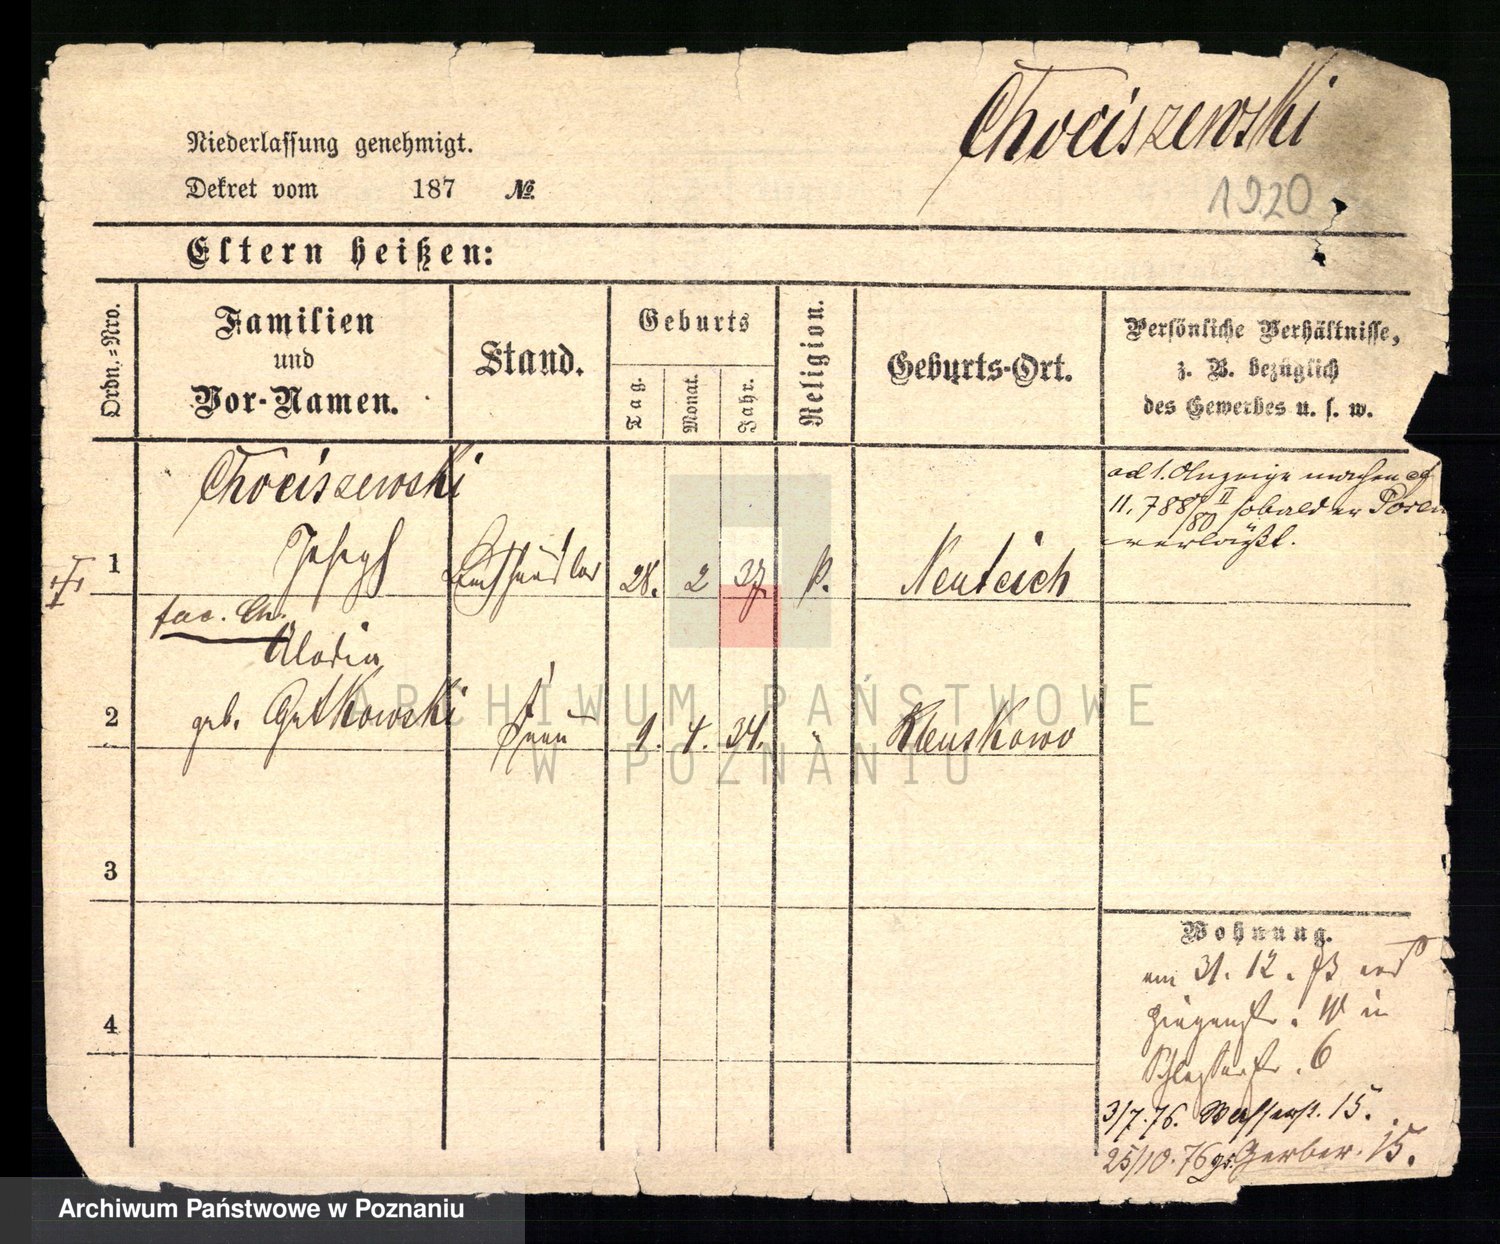 Chociszewski
1920
Niederlassung genehmigt.
Dekret vom 187 №
Eltern heißen:
Ordn.=Nro.
Familien
und
Vor-Namen.
Stand.
Geburts
Tag.
Monat.
Jahr.
Religion.
Geburts-Ort.
Persönliche Verhältnisse,
z. B. bezüglich
des Gewerbes u. s. w.
Chociszewski
1 Joseph Buchhändler 28. 2 37. k. Neuteich
ad 1. Anzeige machen cf
11. 788/80 II sobald er Posen
verläßt.
2 geb. Gutkowski Frau 9. 4. 34. "
3
4
Wohnung.
am 31. 12. 73
in
6
3/7. 76. Wasserst. 15.
25/10. 76 gr. Gerber. 15.
ARCHIWUM PAŃSTWOWE
W POZNANIU
Archiwum Państwowe w Poznaniu